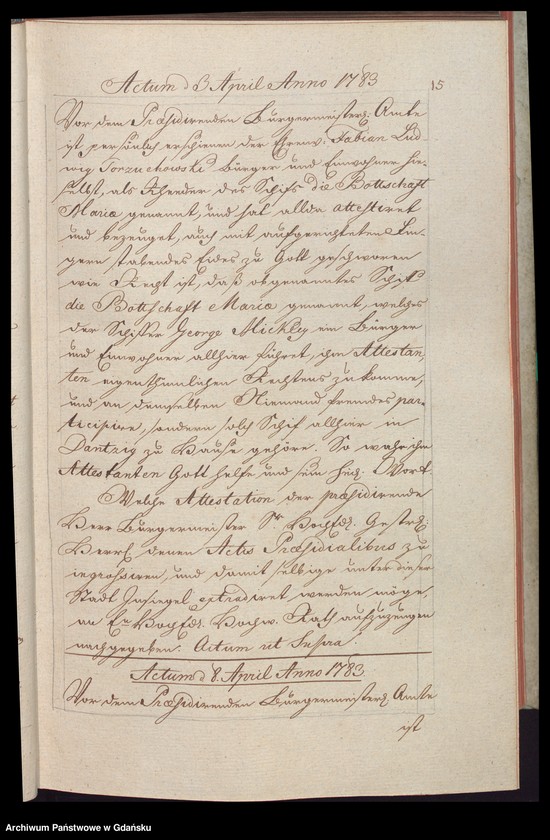 Actum d 3 April Anno 1783
15
Vor dem Præsidirenden Bürgermeisterl: Amte
ist persönlich erschienen der Ehrenv: Fabian Lud-
wig Torzuchowski Bürger und Einwohner hie-
selbst, als Rheeder des Schifs die Bottschaft
Maria genannt, und hat allda attestiret
und bezeuget, auch mit aufgerichteten Fin-
gern stabendes Eides zu Gott geschworen
wie Recht ist, daß obgenanntes Schif
die Bottschaft Maria genannt, welches
der Schiffer George Mickley ein Bürger
und Einwohner allhier führet, ihm Attestan-
ten eigenthümlichen Rechtens zukomme,
und an demselben Niemand fremdes par-
ticipire, sondern solch Schif allhier in
Dantzig zu Hause gehöre. So wahr ihm
Attestanten Gott helfe und sein heil. Wort.
Welche Attestation der præsidirende
Herr Bürgermeister Sr Hochfdl. Gestr:
Herrl denen Actis Præsidialibus zu
ingrossiren, und damit selbige unter dieser
Stadt Insiegel extradiret werden möge,
an En Hochfdl. Hochw. Rath aufzuzeugen
nachgegeben. Actum ut Supra.
Actum d 8. April Anno 1783.
Vor dem Præsidirenden Bürgermeisterl Amte
ist
Archiwum Państwowe w Gdańsku